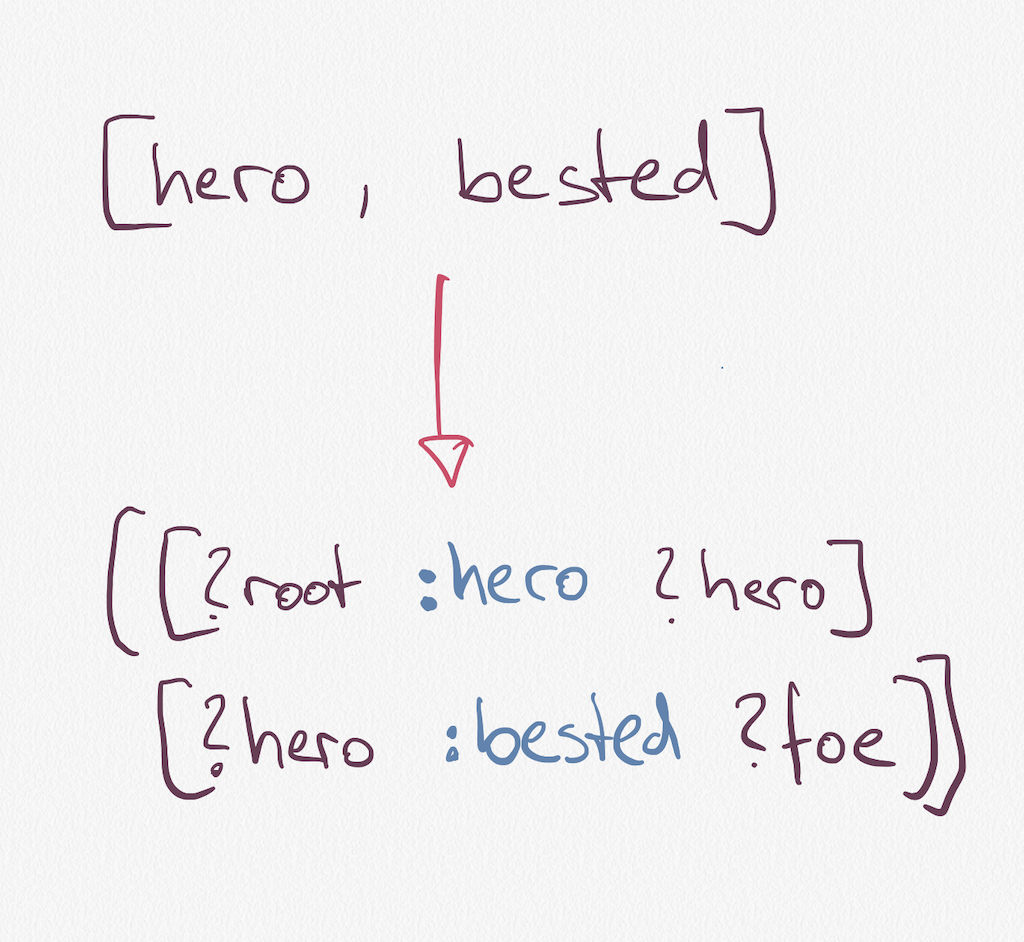 [hero, bested]
([?root :hero ?hero]
[?hero :bested ?foe])